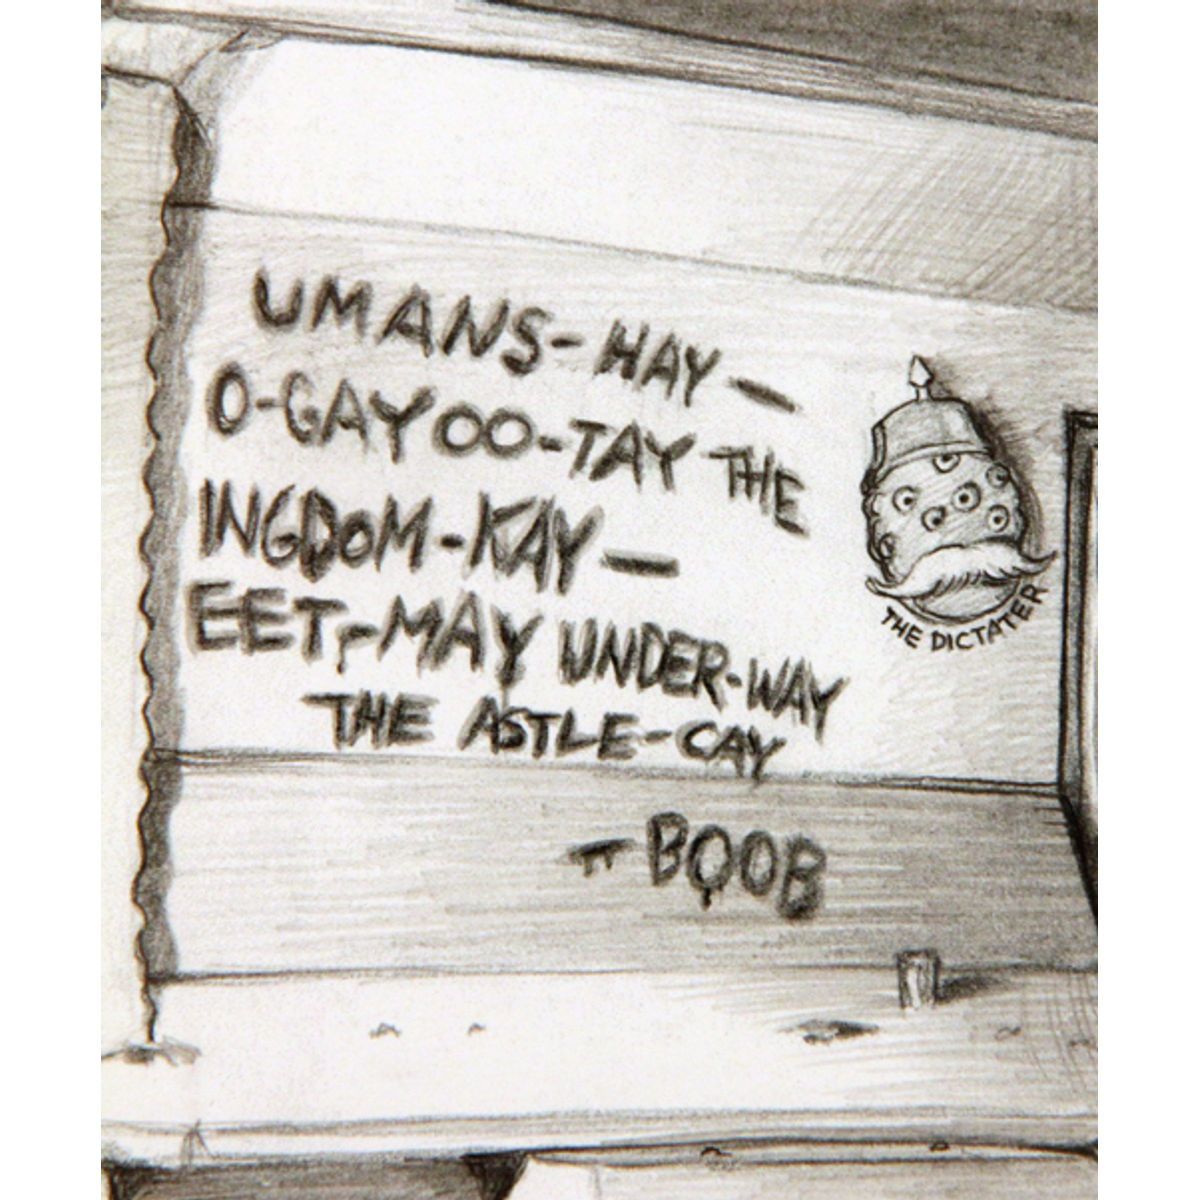 UMANS-HAY —
O-GAY OO-TAY THE
INGDOM-KAY —
EET-MAY UNDER-WAY
THE ASTLE-CAY
- BOOB
THE DICTATER